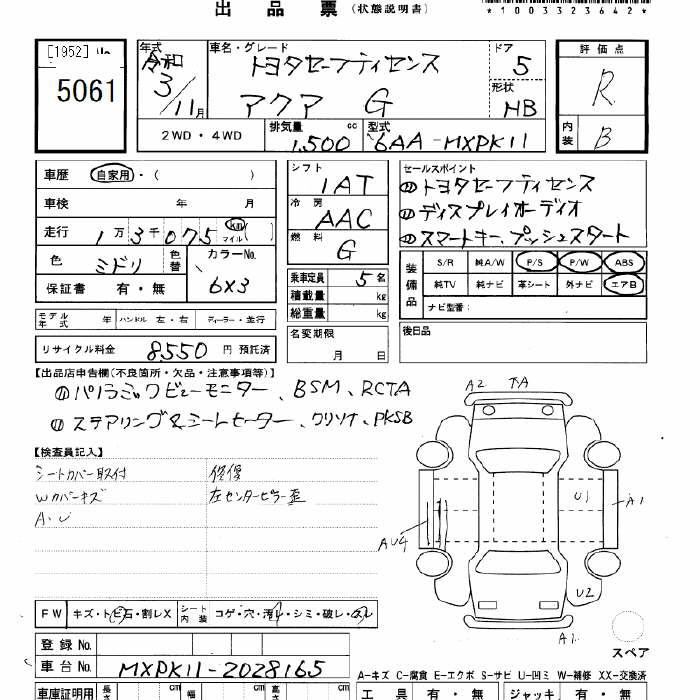 出品票 (状態説明書)
*1003323642*
[1952] 5061
年式 令和 3/11月
車名・グレード トヨタセーフティセンス
アクア G
ドア 5
形状 HB
評価点 R
内装 B
2WD・4WD
排気量 1,500 cc
型式 6AA-MXPK11
車歴 自家用・( )
車検 年 月
走行 1万3千075 km マイル
色 ミドリ 色替 カラーNo. 6X3
保証書 有・無
シフト IAT
冷房 AAC
燃料 G
乗車定員 5名
積載量 kg
総重量 kg
セールスポイント
トヨタセーフティセンス
ディスプレイオーディオ
スマートキー、プッシュスタート
装備品 S/R 純A/W P/S P/W ABS
純TV 純ナビ 革シート 外ナビ エアB
ナビ型番:
モデル年式 年 ハンドル 左・右 ディーラー・並行
名変期限 月 日
後日品
リサイクル料金 8,550 円 預託済
【出品店申告欄(不良箇所・欠品・注意事項等)】
パノラミックビューモニター、BSM、RCTA
ステアリング&シートヒーター、クリソナ、PKSB
【検査員記入】
シートカバー取付 修復
Wカバーキズ 左センターピラー歪
A・U
A2
U1
A1
AU4
U2
A1
スペア
FW キズ・トビ石・割レX シート内装 コゲ・穴・汚レ・シミ・破レ・スレ
登録No.
車台No. MXPK11-2028165
A-キズ C-腐食 E-エクボ S-サビ U-凹ミ W-補修 XX-交換済
車庫証明用 長さ cm 幅 cm 高さ cm
工具 有・無 ジャッキ 有・無